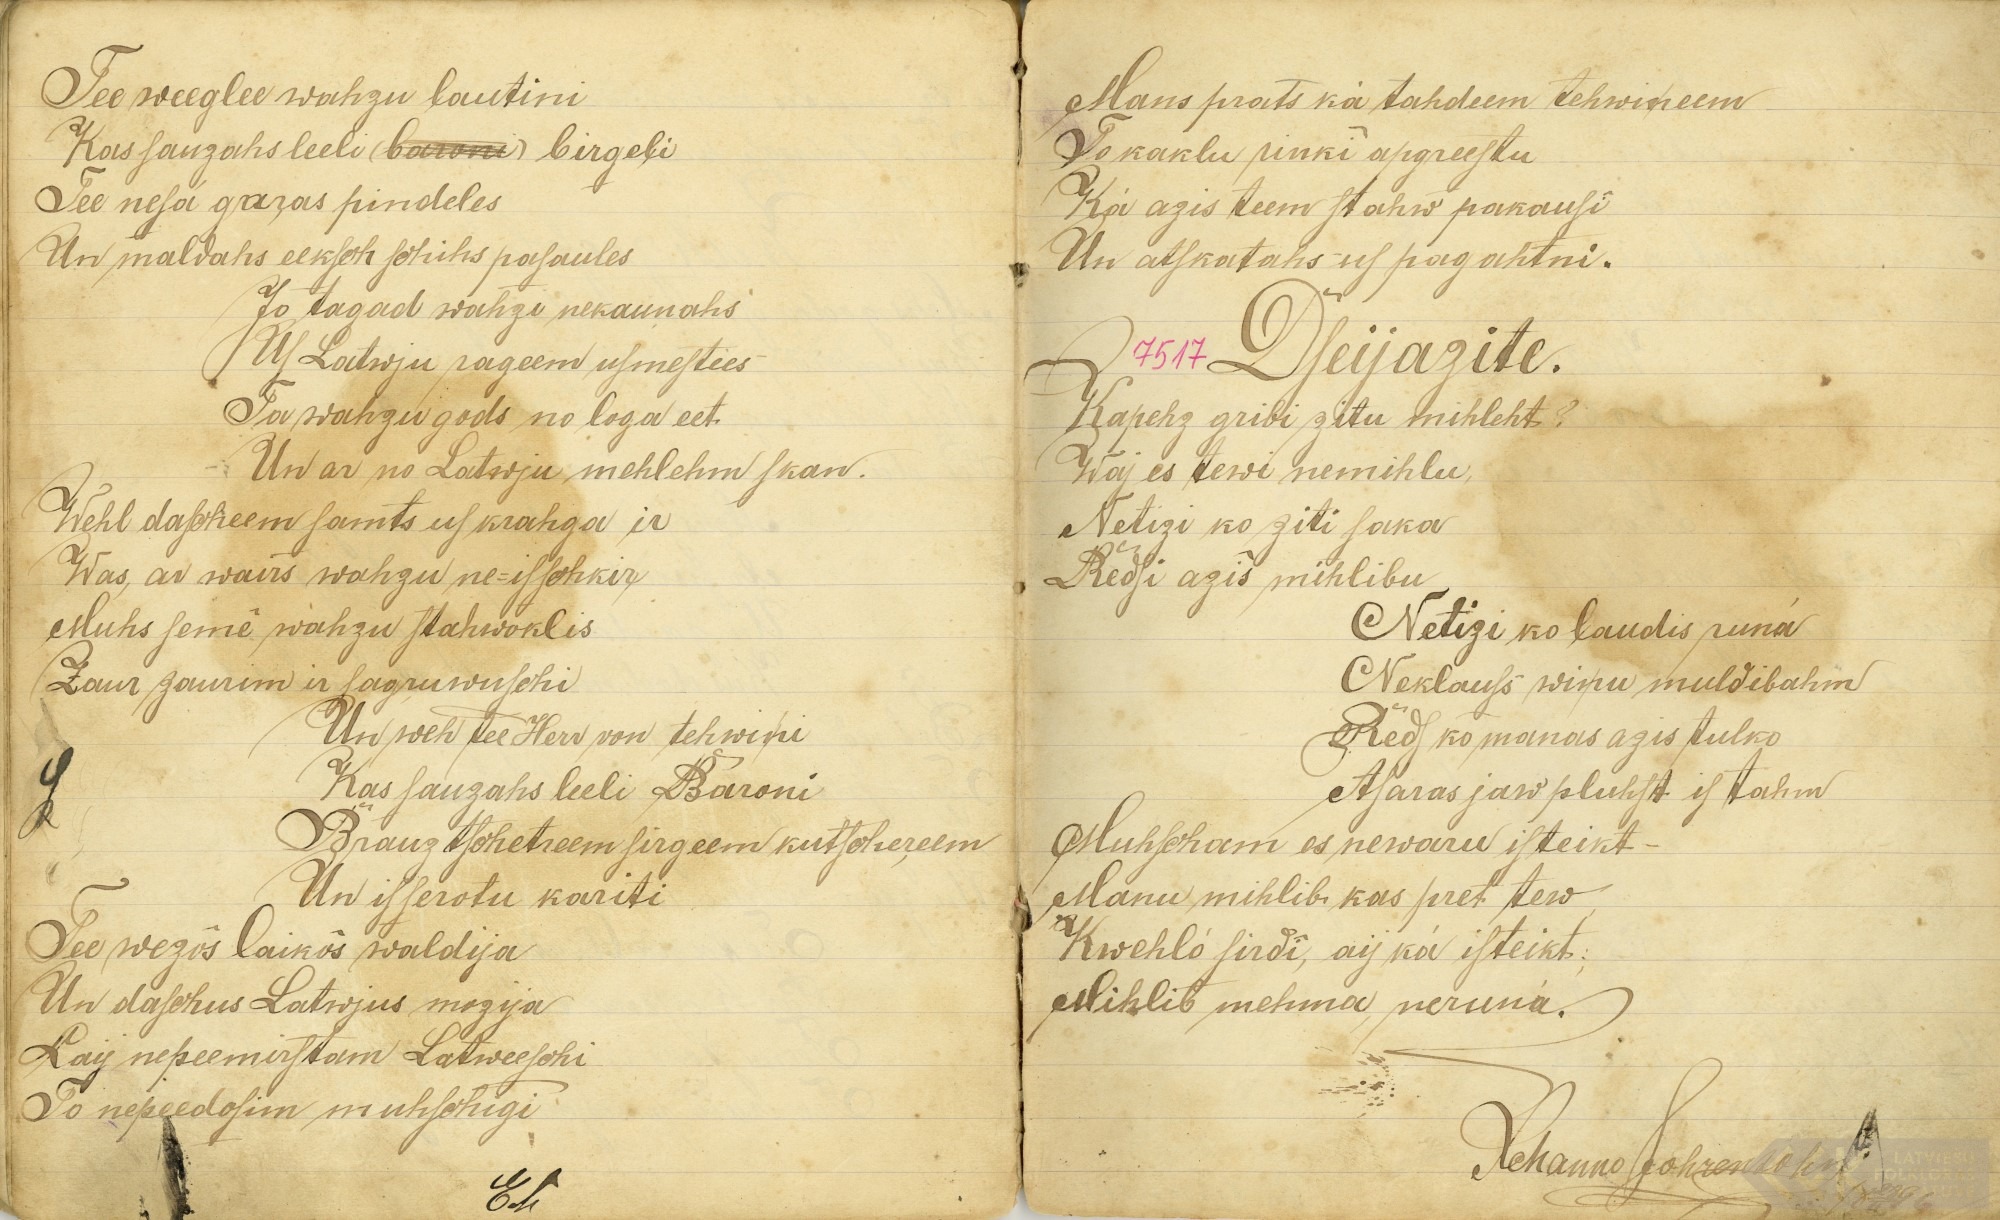 Tee weeglee wahzu lautini
Kas sauzahs leeli (baroni) birgeli
Tee nesá grazas pindeles
Un maldahs eeksch schihs pasaules
Jo tagad wahzi nekaunahs
Us Latwju rageem usmestees
Ta wahzu gods no loga eet
Un ar no Latwju mehlehm skan.
Wehl dascheem samts us krahga ir
Was, ar wairs wahzu ne=isschkir
Muhs semê wahzu stahwoklis
Zaur zaurim ir sagruwuschi
Un weh tee Herr von tehwiņi
Kas sauzahs leeli Baroni
Brauz tschetreem sirgeem kutschereem
Un isserotu kariti
Tee wezôs laikôs waldija
Un daschus Latwjus mozija
Laij nepeemirstam Latweeschi
To nepeedosim muhschigi
Mans prats ká tahdeem tehwiņeem
To kaklu rinkî apgreestu
Ká azis teem stahw pakausî
Un atskatahs us pagahtni.
7517 Dseijazite.
Kapehz gribi zitu mihleht?
Waj es tewi nemihlu,
Netizi ko ziti saka
Redsi azîs mihlibu
Netizi ko laudis runá
Neklauss wiņu muldibahm
Reds ko manas azis tulko
Asaras jaw pluhst is tahm
Muhscham es newaru isteikt -
Manu mihlib kas pret tew
Kwehló sirdî, aij ká isteikt;
Mihlib mehma, neruná.